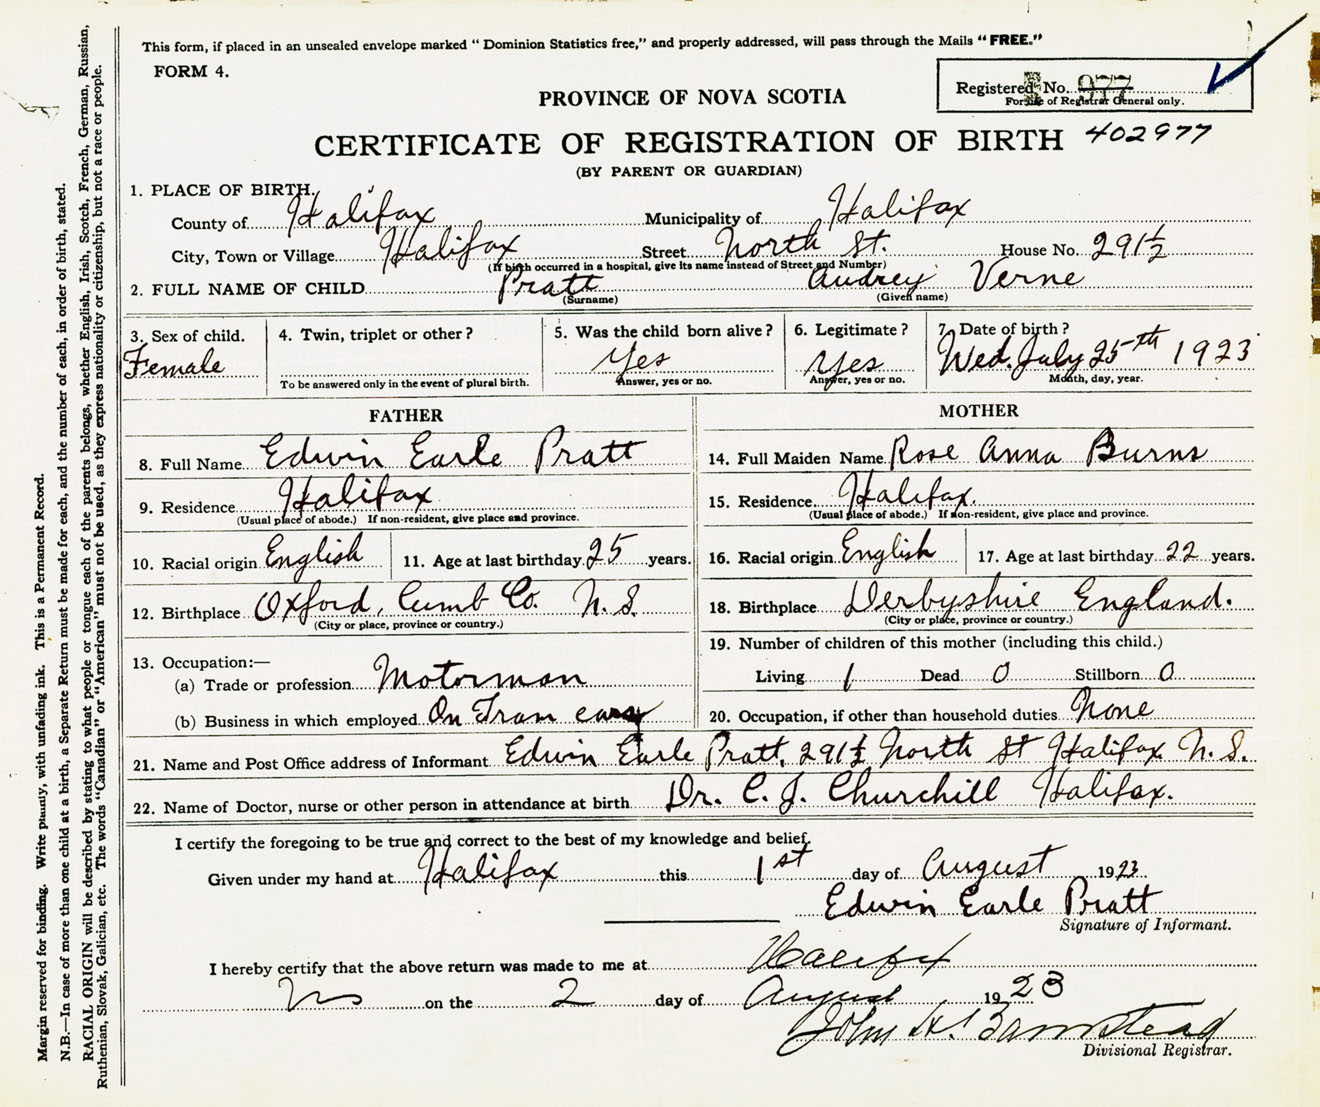 This form, if placed in an unsealed envelope marked "Dominion Statistics free," and properly addressed, will pass through the Mails "FREE."
FORM 4.
Registered No. 977
For use of Registrar General only.
PROVINCE OF NOVA SCOTIA
CERTIFICATE OF REGISTRATION OF BIRTH 402977
(BY PARENT OR GUARDIAN)
1. PLACE OF BIRTH.
County of Halifax Municipality of Halifax
City, Town or Village Halifax Street North St. House No. 291½
(If birth occurred in a hospital, give its name instead of Street and Number)
2. FULL NAME OF CHILD Pratt Audrey Verne
(Surname) (Given name)
3. Sex of child. Female
4. Twin, triplet or other?
To be answered only in the event of plural birth.
5. Was the child born alive? Yes
Answer, yes or no.
6. Legitimate? Yes
Answer, yes or no.
7. Date of birth? Wed. July 25th 1923
Month, day, year.
FATHER
8. Full Name Edwin Earle Pratt
9. Residence Halifax
(Usual place of abode.) If non-resident, give place and province.
10. Racial origin English 11. Age at last birthday 25 years.
12. Birthplace Oxford, Cumb Co. N.S.
(City or place, province or country.)
13. Occupation:—
(a) Trade or profession Motorman
(b) Business in which employed On Tram cars
MOTHER
14. Full Maiden Name Rose Anna Burns
15. Residence Halifax.
(Usual place of abode.) If non-resident, give place and province.
16. Racial origin English 17. Age at last birthday 22 years.
18. Birthplace Derbyshire England.
(City or place, province or country.)
19. Number of children of this mother (including this child.)
Living 1 Dead 0 Stillborn 0
20. Occupation, if other than household duties None
21. Name and Post Office address of Informant Edwin Earle Pratt, 291½ North St Halifax N.S.
22. Name of Doctor, nurse or other person in attendance at birth Dr. C. J. Churchill Halifax.
I certify the foregoing to be true and correct to the best of my knowledge and belief.
Given under my hand at Halifax this 1st day of August 1923
Edwin Earle Pratt
Signature of Informant.
I hereby certify that the above return was made to me at Halifax
NS on the 2 day of August 1923
John H. Barnstead
Divisional Registrar.
Margin reserved for binding. Write plainly, with unfading ink. This is a Permanent Record.
N.B.—In case of more than one child at a birth, a Separate Return must be made for each, and the number of each, in order of birth, stated.
RACIAL ORIGIN will be described by stating to what people or tongue each of the parents belongs, whether English, Irish, Scotch, French, German, Russian,
Ruthenian, Slovak, Galician, etc. The words "Canadian" or "American" must not be used, as they express nationality or citizenship, but not a race or people.